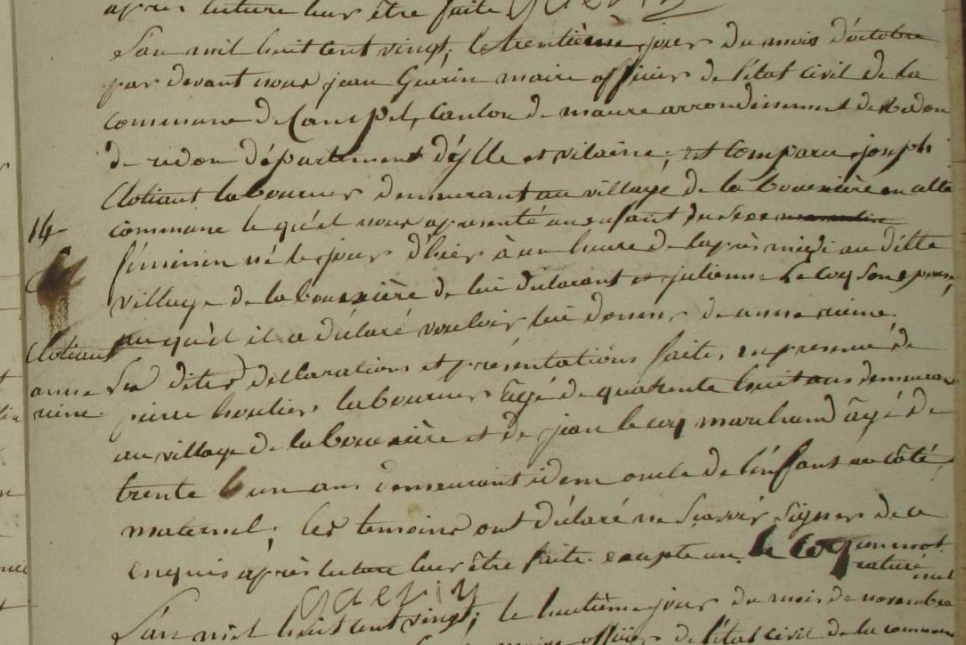 après lecture leur être faite Guerin
L'an mil huit cent vingt, le trentième jour du mois d'octobre
par devant nous jean Guerin maire officier de l'état civil de la
commune de Campel, canton de maure arrondissement de redon
de redon département d'ylle et vilaine, est comparu joseph
Clotiaux laboureur demeurant au village de la bouexière en cette
14
commune le quél nous a présenté un enfant du sexe masculin
féminin né le jour d'hier à un heure de laprès midi au ditte
village de la bouexière de lui déclarant et julienne Le coq son epouse,
auquél il a déclaré vouloir lui donner de anne reine.
Clotiaux
anne
reine
Les dites déclarations et présentations faites en presence de
pierre houlier laboureur âgé de quarente huit ans demeurant
au village de la bouexière et de jean le coq marchand âgé de
trente un ans demeurant idem oncle de l'enfant au côté
maternel; les temoins ont déclaré ne scavoir signer de ce
enquis après lecture leur être faite. excepte un le coq un mot
rature nul
Guerin
L'an mil huit cent vingt, le huitième jour du mois de novembre
maire officier de l'état civil de la commune